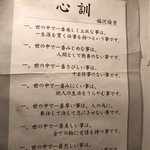 心訓
福沢諭吉
一、世の中で一番楽しく立派な事は、
一生涯を貫く仕事を持つという事です。
一、世の中で一番みじめな事は、
人間として教養のない事です。
一、世の中で一番さびしい事は、
する仕事のない事です。
一、世の中で一番みにくい事は、
他人の生活をうらやむ事です。
一、世の中で一番尊い事は、人の為に、
奉仕して決して恩にきせない事です。
一、世の中で一番美しい事は、
全ての物に愛情を持つ事です。
一、世の中で一番悲しい事は、